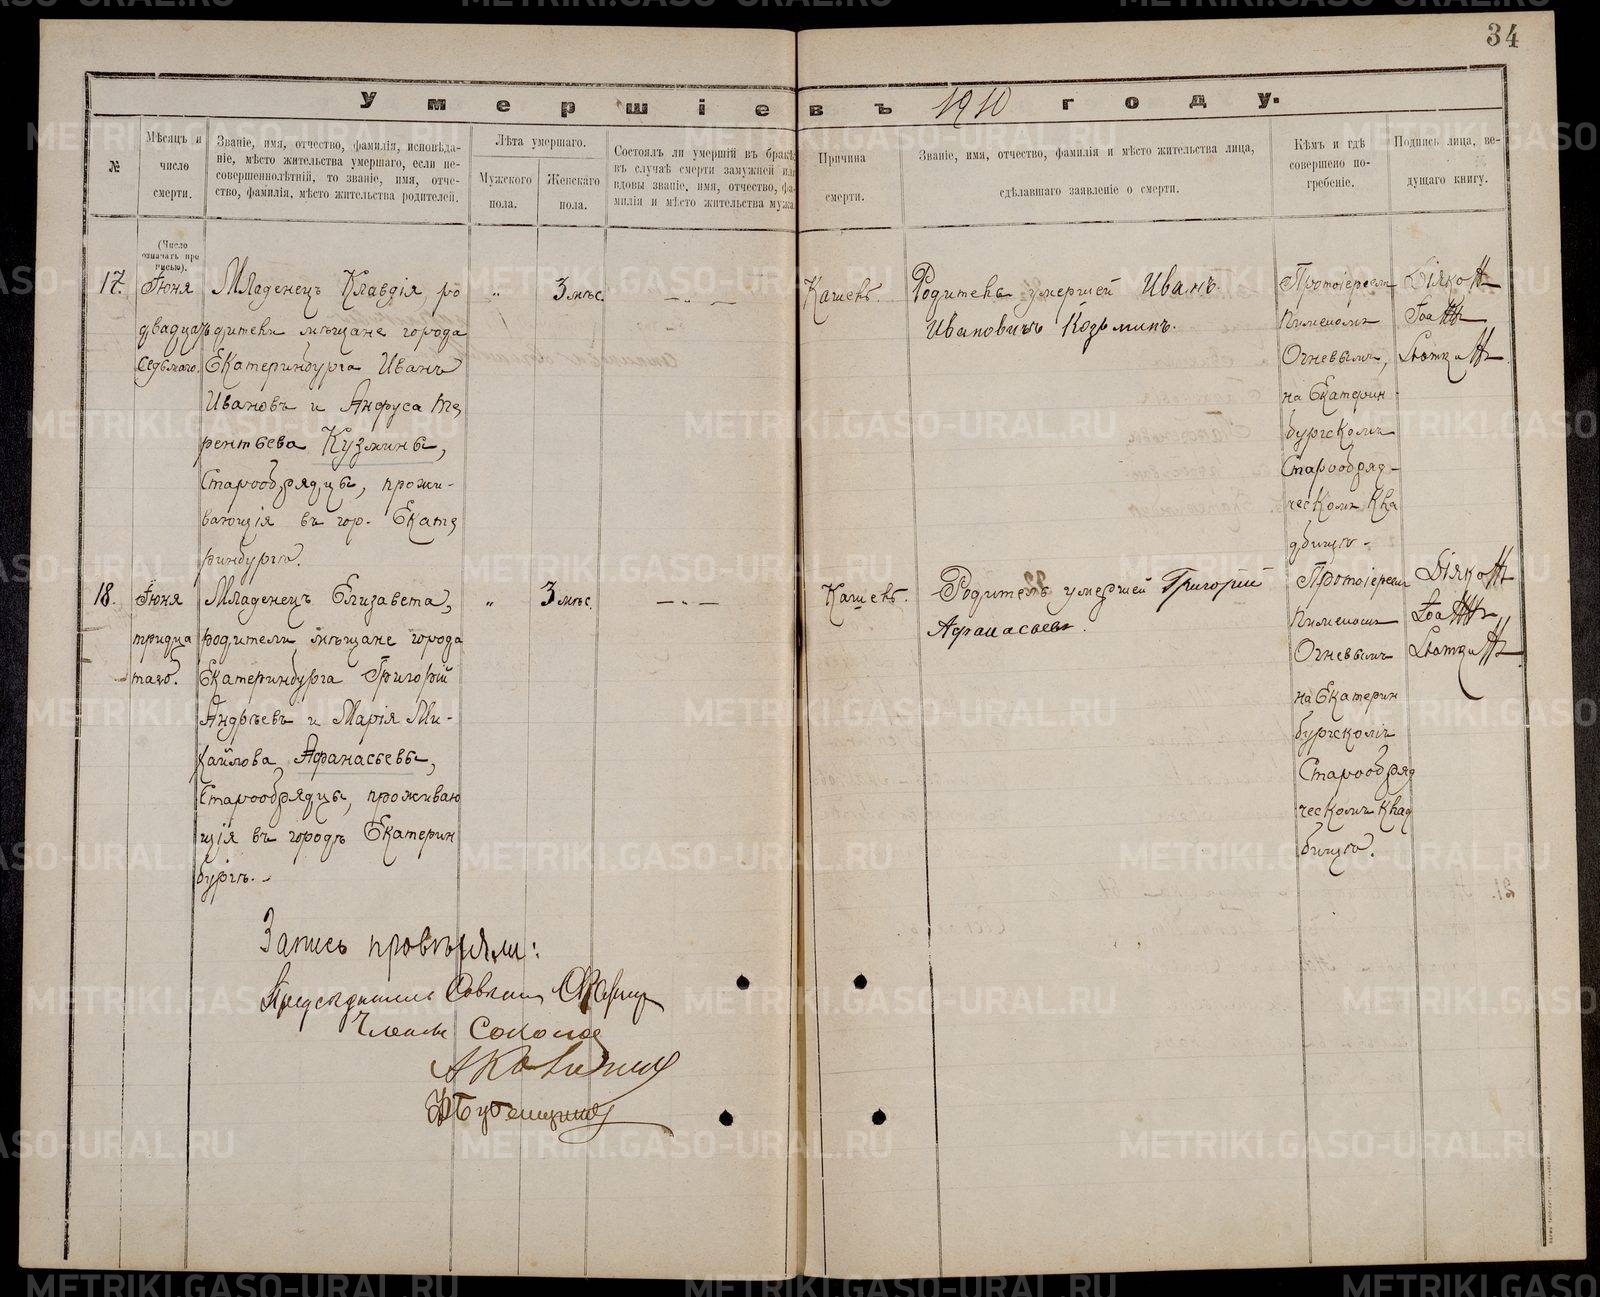 34
Умершіе въ 1910 году.
№
Мѣсяцъ и
число
смерти.
Званіе, имя, отчество, фамилія, исповѣда-
ніе, мѣсто жительства умершаго, если не-
совершеннолѣтній, то званіе, имя, отче-
ство, фамилія, мѣсто жительства родителей.
Лѣта умершаго.
Мужского
пола.
Женскаго
пола.
Состоялъ ли умершій въ бракѣ
въ случаѣ смерти замужней или
вдовы званіе, имя, отчество, фа-
милія и мѣсто жительства мужа.
Причина
смерти.
Званіе, имя, отчество, фамилія и мѣсто жительства лица,
сдѣлавшаго заявленіе о смерти.
Кѣмъ и гдѣ
совершено по-
гребеніе.
Подпись лица, ве-
дущаго книгу.
(Число
означать про
писью).
17.
Іюня
двадцать
седьмаго.
Младенецъ Клавдія, ро
дители мѣщане города
Екатеринбурга Иванъ
Ивановъ и Анфуса Те
рентьева Кузмины,
Старообрядцы, прожи-
вающія въ гор. Екате
ринбургѣ.
"
3 мѣс.
— „ —
Кашель.
Родитель умершей Иванъ
Ивановичъ Козьминъ.
Протоіереем
Кименомъ
Огневымъ,
на Екатерин
бургскомъ
Старообряд-
ческомъ Кла
дбищѣ.
18.
Іюня
тридца
таго.
Младенецъ Елизавета,
родители мѣщане города
Екатеринбурга Григорій
Андрѣевъ и Марія Ми-
хайлова Афанасьевы,
Старообрядцы, проживаю
щія въ городѣ Екатерин
бургѣ.
"
3 мѣс.
— „ —
Кашель.
Родитель умершей Григорій
Афанасьевъ.
Протоіереем
Кименомъ
Огневымъ
на Екатерин
бургскомъ
Старообряд
ческомъ Клад
бищѣ.
Запись провѣряли:
Предсѣдатель Совѣта
Члены
METRIKI.GASO-URAL.RU